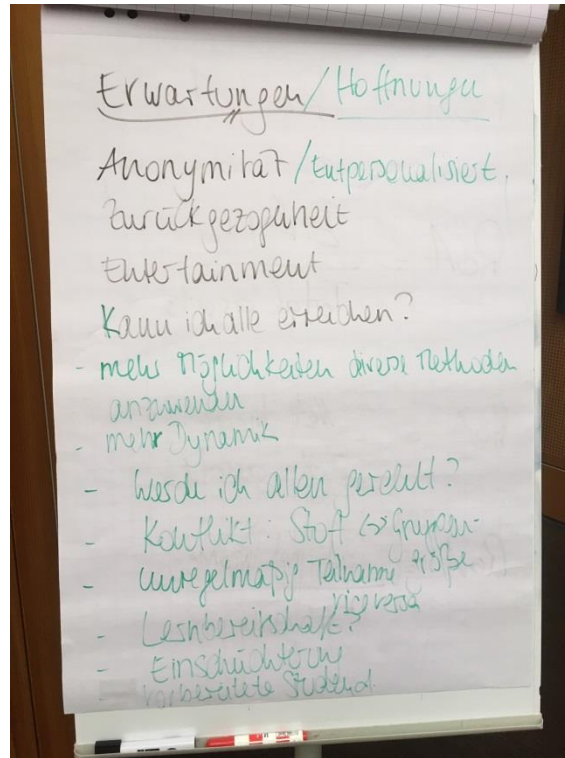 Erwartungen/Hoffnungen
Anonymität/Entpersonalisiert
Zurückgezogenheit
Entertainment
Kann ich alle erreichen?
- mehr Möglichkeiten diverse Methoden
anzuwenden
- mehr Dynamik
- Werde ich allen gerecht?
- Konflikt: Stoff <-> Gruppen-
größe
- unregelmäßig Teilnahme
vice versa
- Lernbereitschaft?
- Einschüchterung
- vorbereitete Studend.